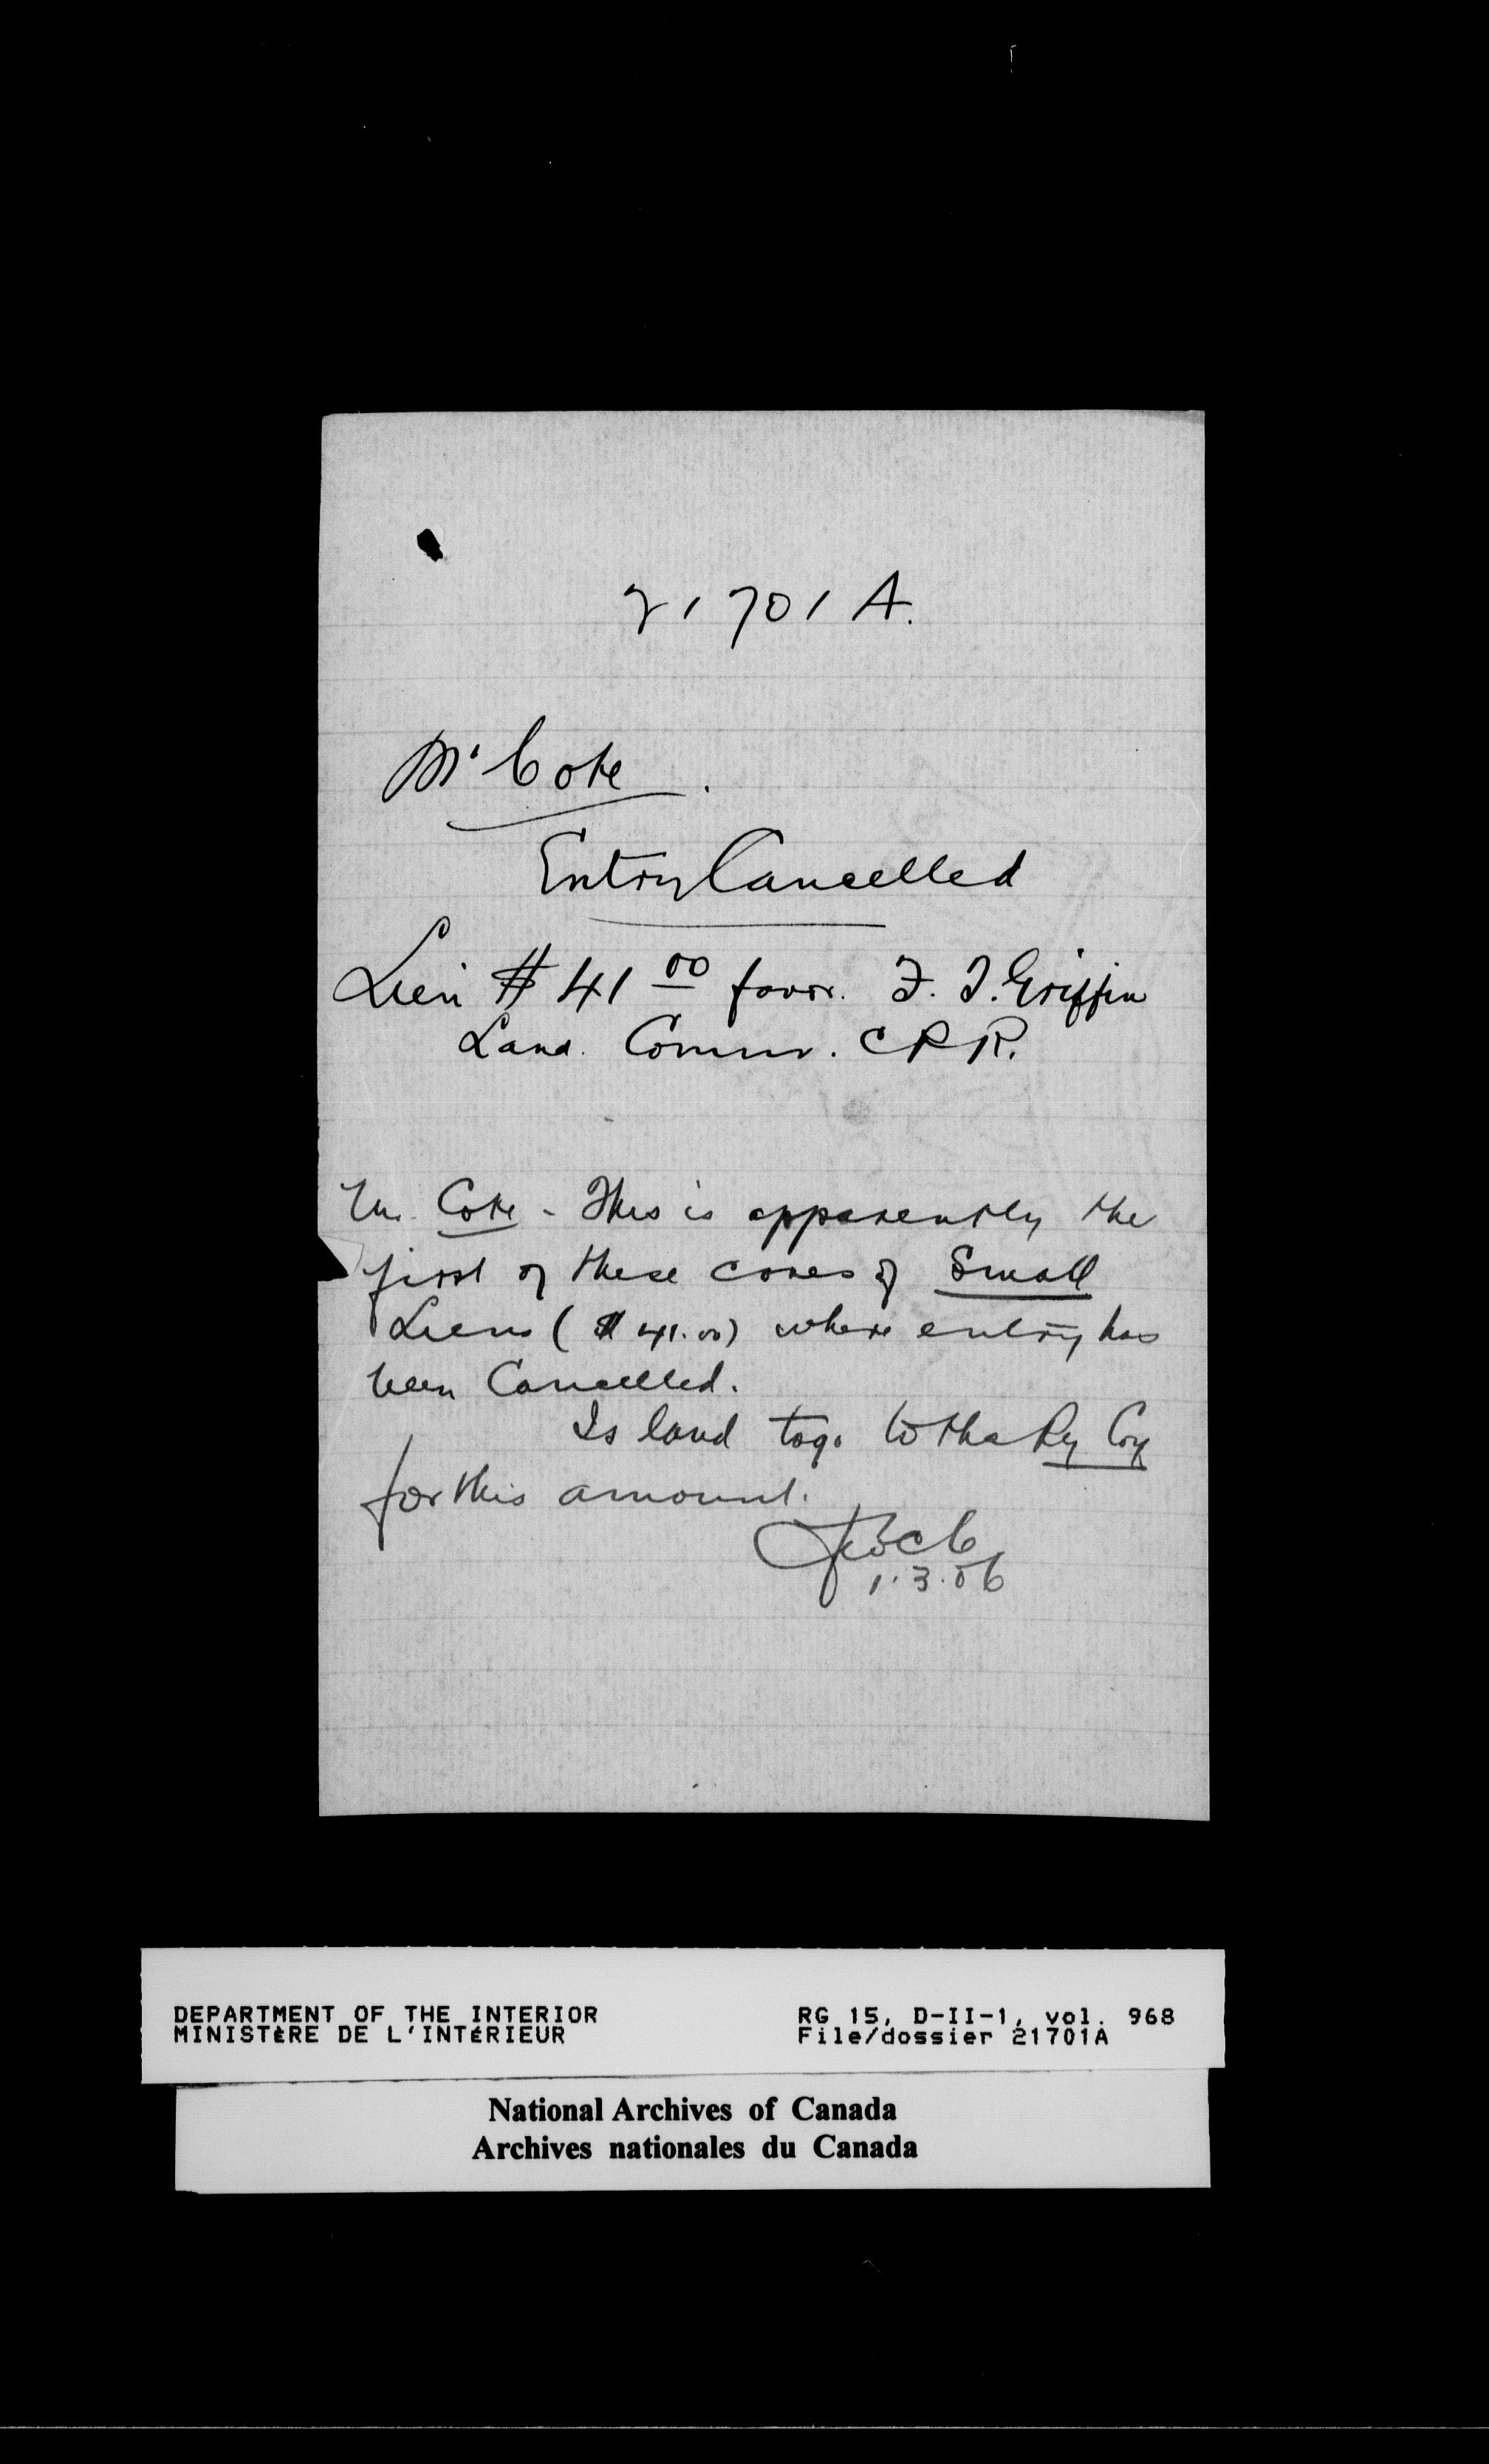 21701 A.
Mr Cote.
Entry Cancelled
Lien $41 00 favor. F. T. Griffin
Land. Commr. CPR.
Mr. Cote - This is apparently the
first of these cases of Small
Liens ($41.00) where entry has
been Cancelled.
Is land to go to the Ry Coy
for this amount.
1.3.06
DEPARTMENT OF THE INTERIOR
MINISTÈRE DE L'INTÉRIEUR
RG 15, D-II-1, vol. 968
File/dossier 21701A
National Archives of Canada
Archives nationales du Canada